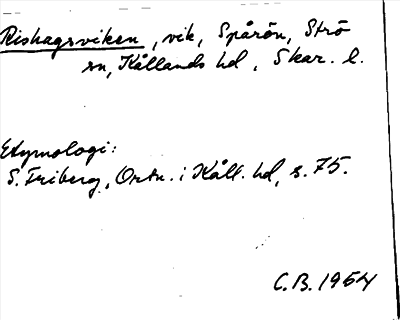 Rishagsviken, vik, Spårön, Strö
sn, Kållands hd, Skar. l.
Etymologi:
S. Friberg, Ortn. i Kåll. hd, s. 75.
C.B. 1964